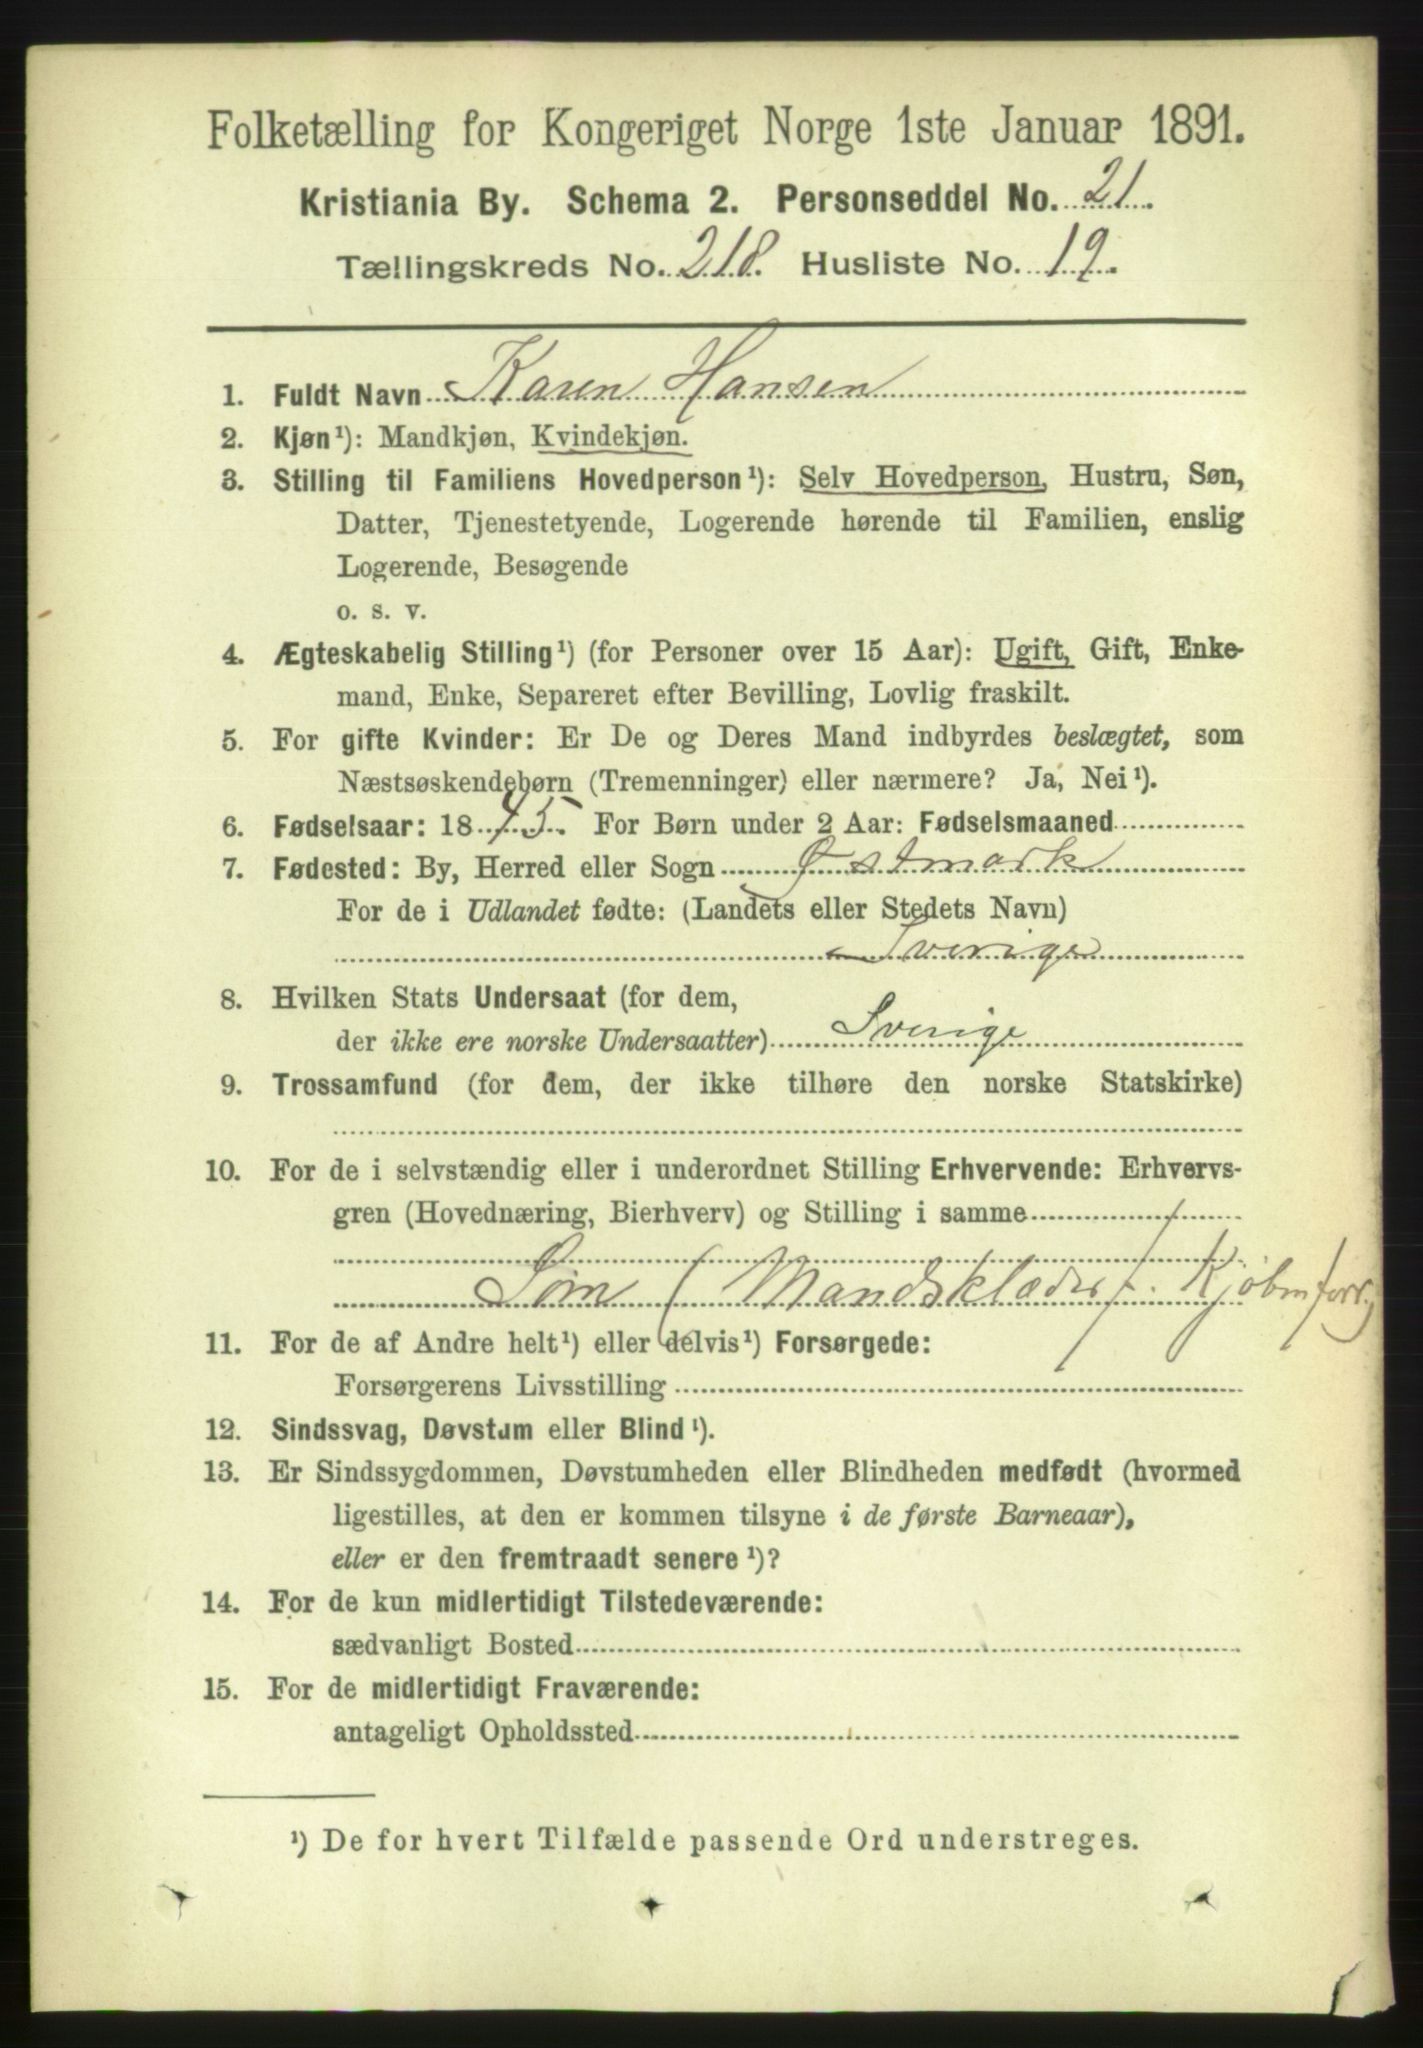 Folketælling for Kongeriget Norge 1ste Januar 1891.
Kristiania By. Schema 2. Personseddel No. 21.
Tællingskreds No. 218. Husliste No. 19.
1. Fuldt Navn Karen Hansen
2. Kjøn¹): Mandkjøn, Kvindekjøn.
3. Stilling til Familiens Hovedperson¹): Selv Hovedperson, Hustru, Søn,
Datter, Tjenestetyende, Logerende hørende til Familien, enslig
Logerende, Besøgende
o. s. v.
4. Ægteskabelig Stilling¹) (for Personer over 15 Aar): Ugift, Gift, Enke-
mand, Enke, Separeret efter Bevilling, Lovlig fraskilt.
5. For gifte Kvinder: Er De og Deres Mand indbyrdes beslægtet, som
Næstsøskendebørn (Tremenninger) eller nærmere? Ja, Nei¹).
6. Fødselsaar: 1845. For Børn under 2 Aar: Fødselsmaaned
7. Fødested: By, Herred eller Sogn Østmark
For de i Udlandet fødte: (Landets eller Stedets Navn)
Sverige
8. Hvilken Stats Undersaat (for dem,
der ikke ere norske Undersaatter) Sverige
9. Trossamfund (for dem, der ikke tilhøre den norske Statskirke)
10. For de i selvstændig eller i underordnet Stilling Erhvervende: Erhvervs-
gren (Hovednæring, Bierhverv) og Stilling i samme
Søm (Mandsklæder f. Kjøbmforr.)
11. For de af Andre helt¹) eller delvis¹) Forsørgede:
Forsørgerens Livsstilling
12. Sindssvag, Døvstum eller Blind¹).
13. Er Sindssygdommen, Døvstumheden eller Blindheden medfødt (hvormed
ligestilles, at den er kommen tilsyne i de første Barneaar),
eller er den fremtraadt senere¹)?
14. For de kun midlertidigt Tilstedeværende:
sædvanligt Bosted
15. For de midlertidigt Fraværende:
antageligt Opholdssted
¹) De for hvert Tilfælde passende Ord understreges.